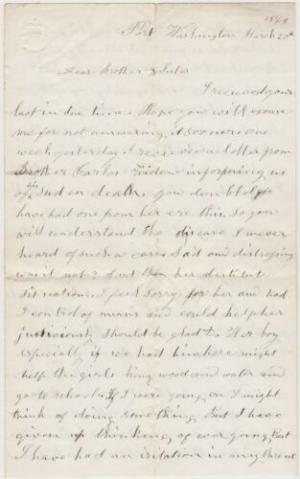 1868
Fort Washington March 20th
Dear Brother & Sister
I received your
last in due time. Hope you will excuse
me for not answering it sooner. one
week yesterday I received a letter from
Brother Carlos informing us
of his Sudden death, you doubtless
have had one from her ere this, so you
will understand the disease I never
heard of such a case. Sad and distressing
was it not? and then her destitute
situation. I feel sorry for her and had
I control of means and could help her
judiciously should be glad to. Her boy
especially if we had him here might
help the girls bring wood and water and
go to school. If I were going on I might
think of doing something, But I have
given up thinking of ever going, But
I have had an iritation in my throat